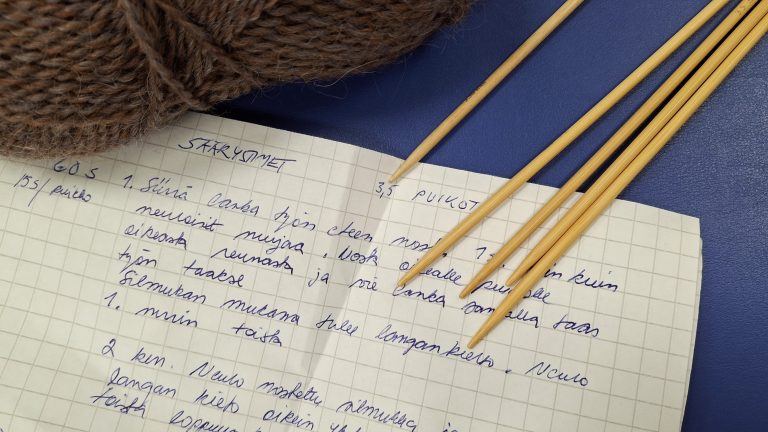 SÄÄRYSTIMET
60 S 3,5 PUIKOT
15 S/ puikko
1. Siirrä lanka työn eteen nosta 1 s. kuin
neuloisit nurjaa. Nosta oikealle puikolle
oikeasta reunasta ja vie lanka samalla taas
työn taakse
Silmukan mukana tulee langankierto. Neulo
1. nurin toista
2 ker. Neulo nostettu silmukka ja
langan kierto oikein
toista